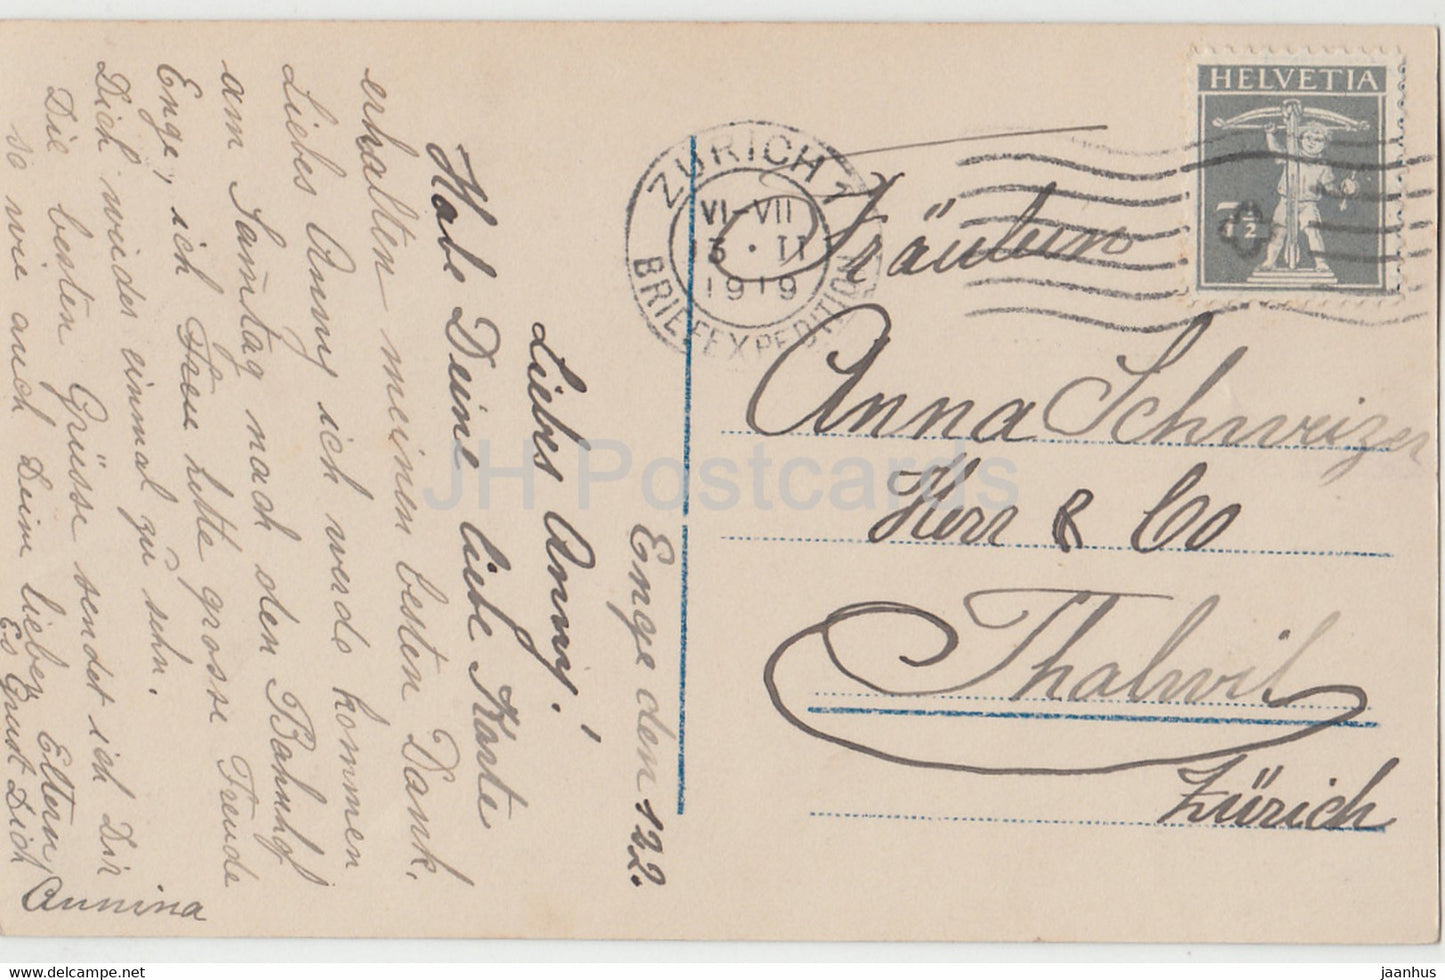 Enge den 12 2.
Liebes Anny!
Habe Deine liebe Karte
erhalten meinen besten Dank.
Liebes Anny ich werde kommen
am Samstag nach den Bahnhof
Enge, ich Freu hätte grosse Freude
Dich wieder einmal zu sehn.
Die besten Grüsse sendet ich Dir
so wie auch Deinen lieben Eltern
Es Grüst Dich
Annina
ZÜRICH 1
VI-VII
13 · II
1919
BRIEFEXPEDITION
HELVETIA
7½
Fräulein
Anna Schweizer
Herr & Co
Thalwil
Zürich
JH Postcards
jaanhus—hip.com